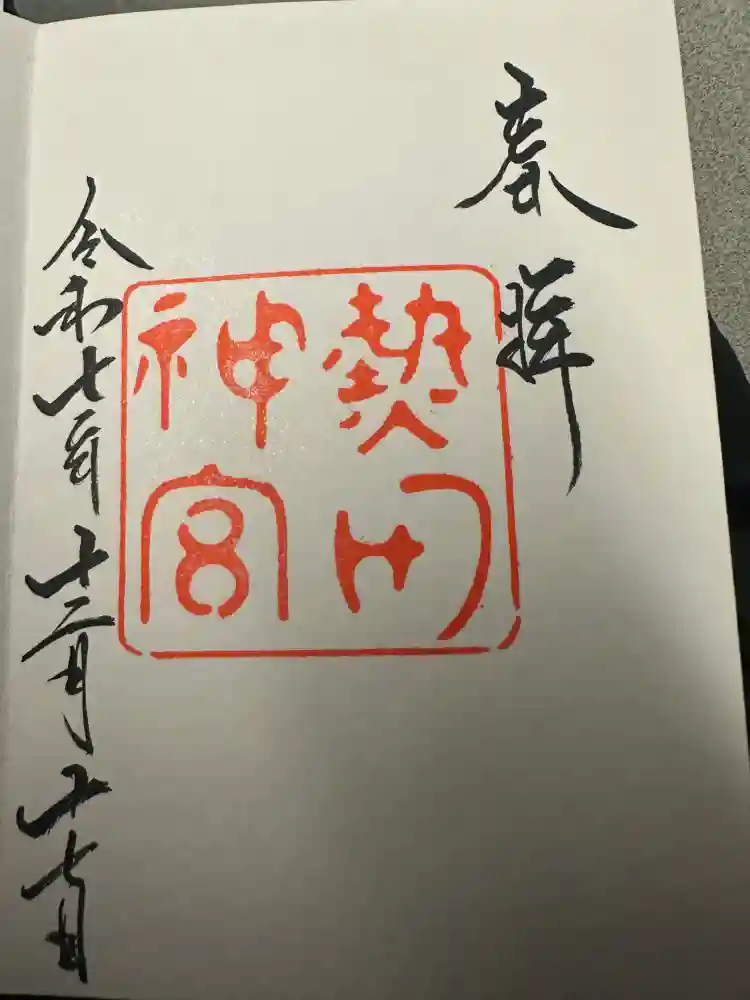 奉拝
熱田
神宮
令和七年十二月十七日